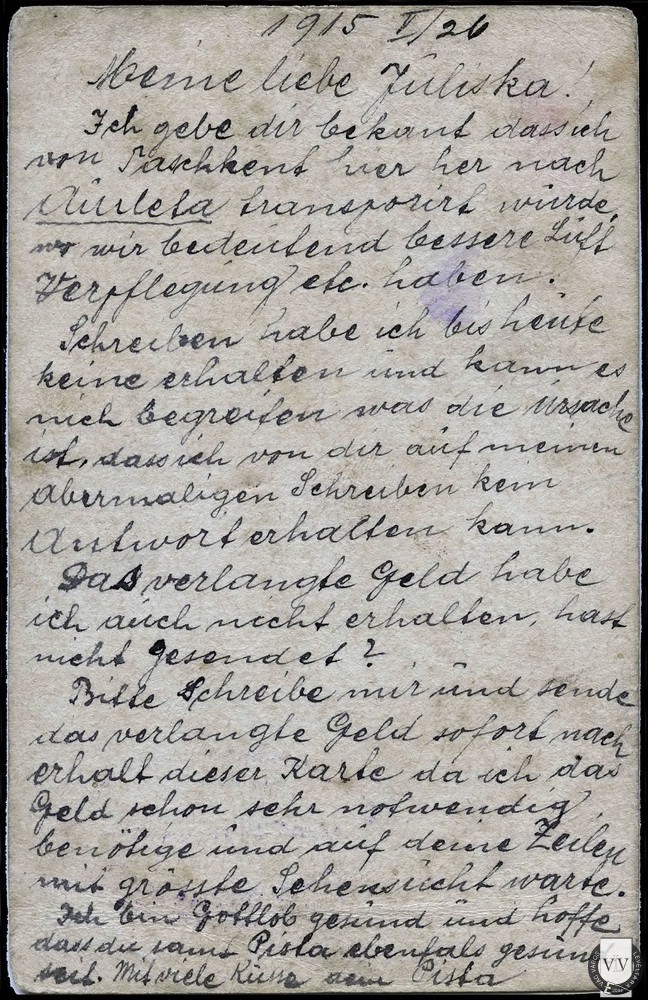 1915 V/26
Meine liebe Juliska!
Ich gebe dir bekant dass ich
von Taschkent hier her nach
Aulieta transporirt wurde,
wo wir bedeutend bessere Luft
Verpflegung etc. haben.
Schreiben habe ich bis heute
keine erhalten und kann es
nich begreifen was die Ursache
ist, dass ich von dir auf meinen
abermaligen Schreiben kein
Antwort erhalten kann.
Das verlangte Geld habe
ich auch nicht erhalten, hast
nicht gesendet?
Bitte Schreibe mir und sende
das verlangte Geld sofort nach
erhalt dieser Karte da ich das
Geld schon sehr notwendig
benötige und auf deine Zeilen
mit grösste Sehensucht warte.
Ich bin Gottlob gesund und hoffe
dass du samt Piota ebenfals gesun
seit. Mit viele Küsse dein Pista
VV